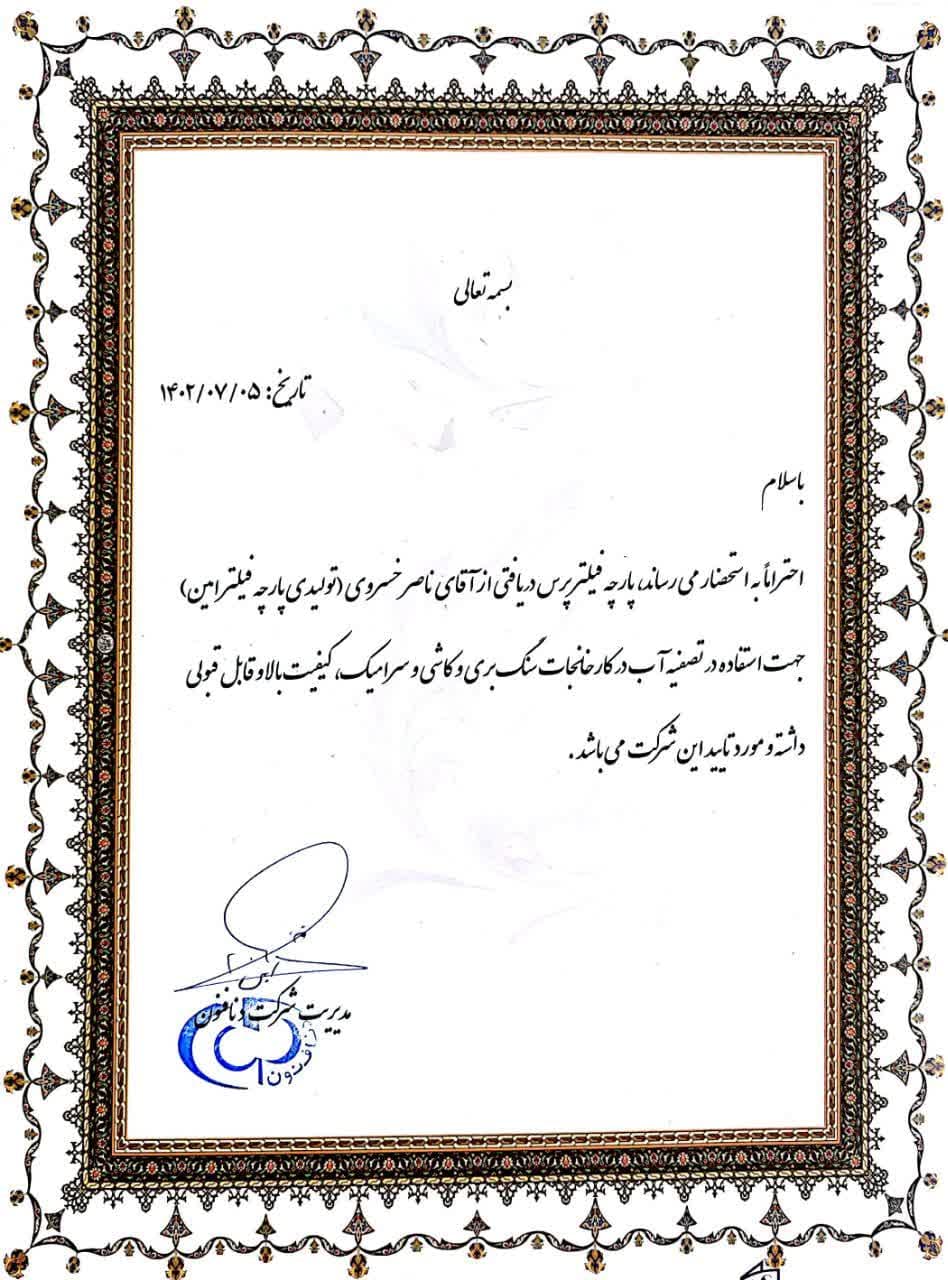 بسمه تعالی
تاریخ: ۱۴۰۲/۰۷/۰۵
باسلام
احتراماً به استحضار می رساند، پارچه فیلتر پرس دریافتی از آقای ناصر خسروی (تولیدی پارچه فیلتر امین)
جهت استفاده در تصفیه آب در کارخانجات سنگ بری و کاشی و سرامیک، کیفیت بالا و قابل قبولی
داشته و مورد تایید این شرکت می باشد.
مدیریت شرکت دنا فنون